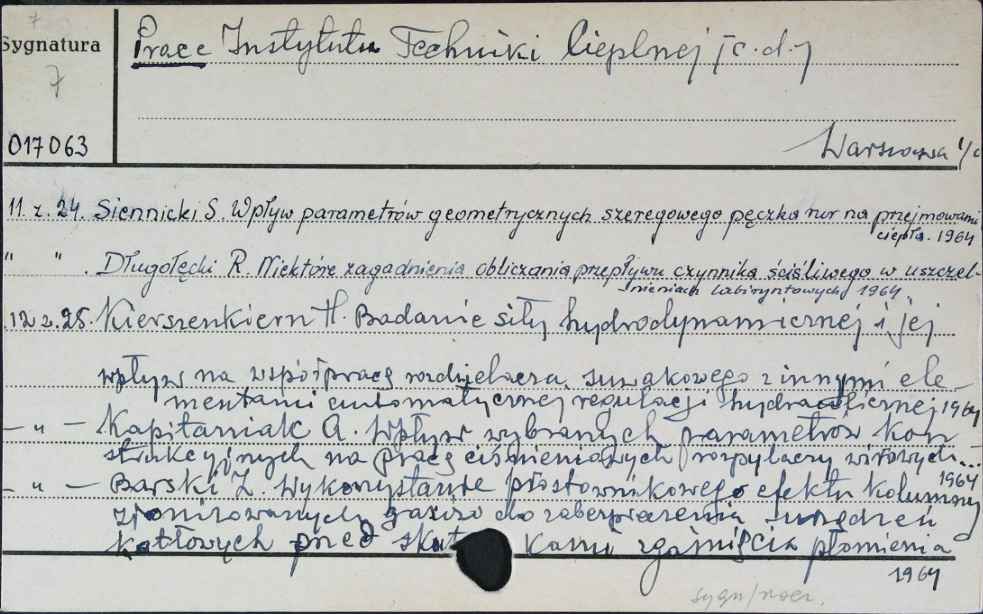 7
Sygnatura
7
017063
Prace Instytutu Techniki Cieplnej [c.d.]
Warszawa
11 z. 24. Siennicki S. Wpływ parametrów geometrycznych szeregowego pęczka rur na przejmowani
ciepła. 1964
" " . Długołęcki R. Niektóre zagadnienia obliczania przepływu czynnika ściśliwego w uszczel-
nieniach labiryntowych 1964
.12 z. 25. Kierszenkiern H. Badanie siły hydrodynamicznej i jej
wpływ na współpracę rozdzielacza suwakowego z innymi ele-
mentami automatycznej regulacji hydraulicznej 1964
- " - Kapitaniak A. Wpływ wybranych parametrów kon-
strukcyjnych na pracę ciśnieniowych rozpylaczy wirowych...
1964
- " - Barski Z. Wykorzystanie prostownikowego efektu kolumny
zjonizowanych gazów do zabezpieczenia urządzeń
kotłowych przed skutkami zgaśnięcia płomienia
1964